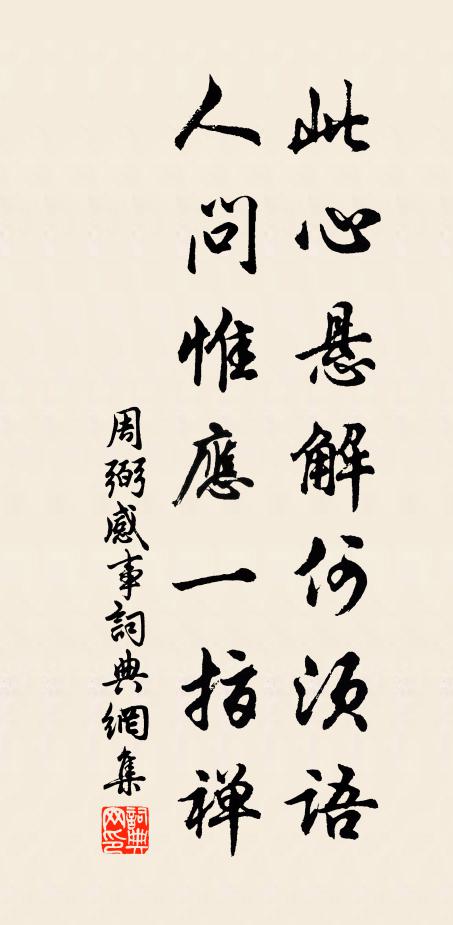 此心悬解何须語
人問惟應一指禅
周弼感事詞典網集
詞典網印